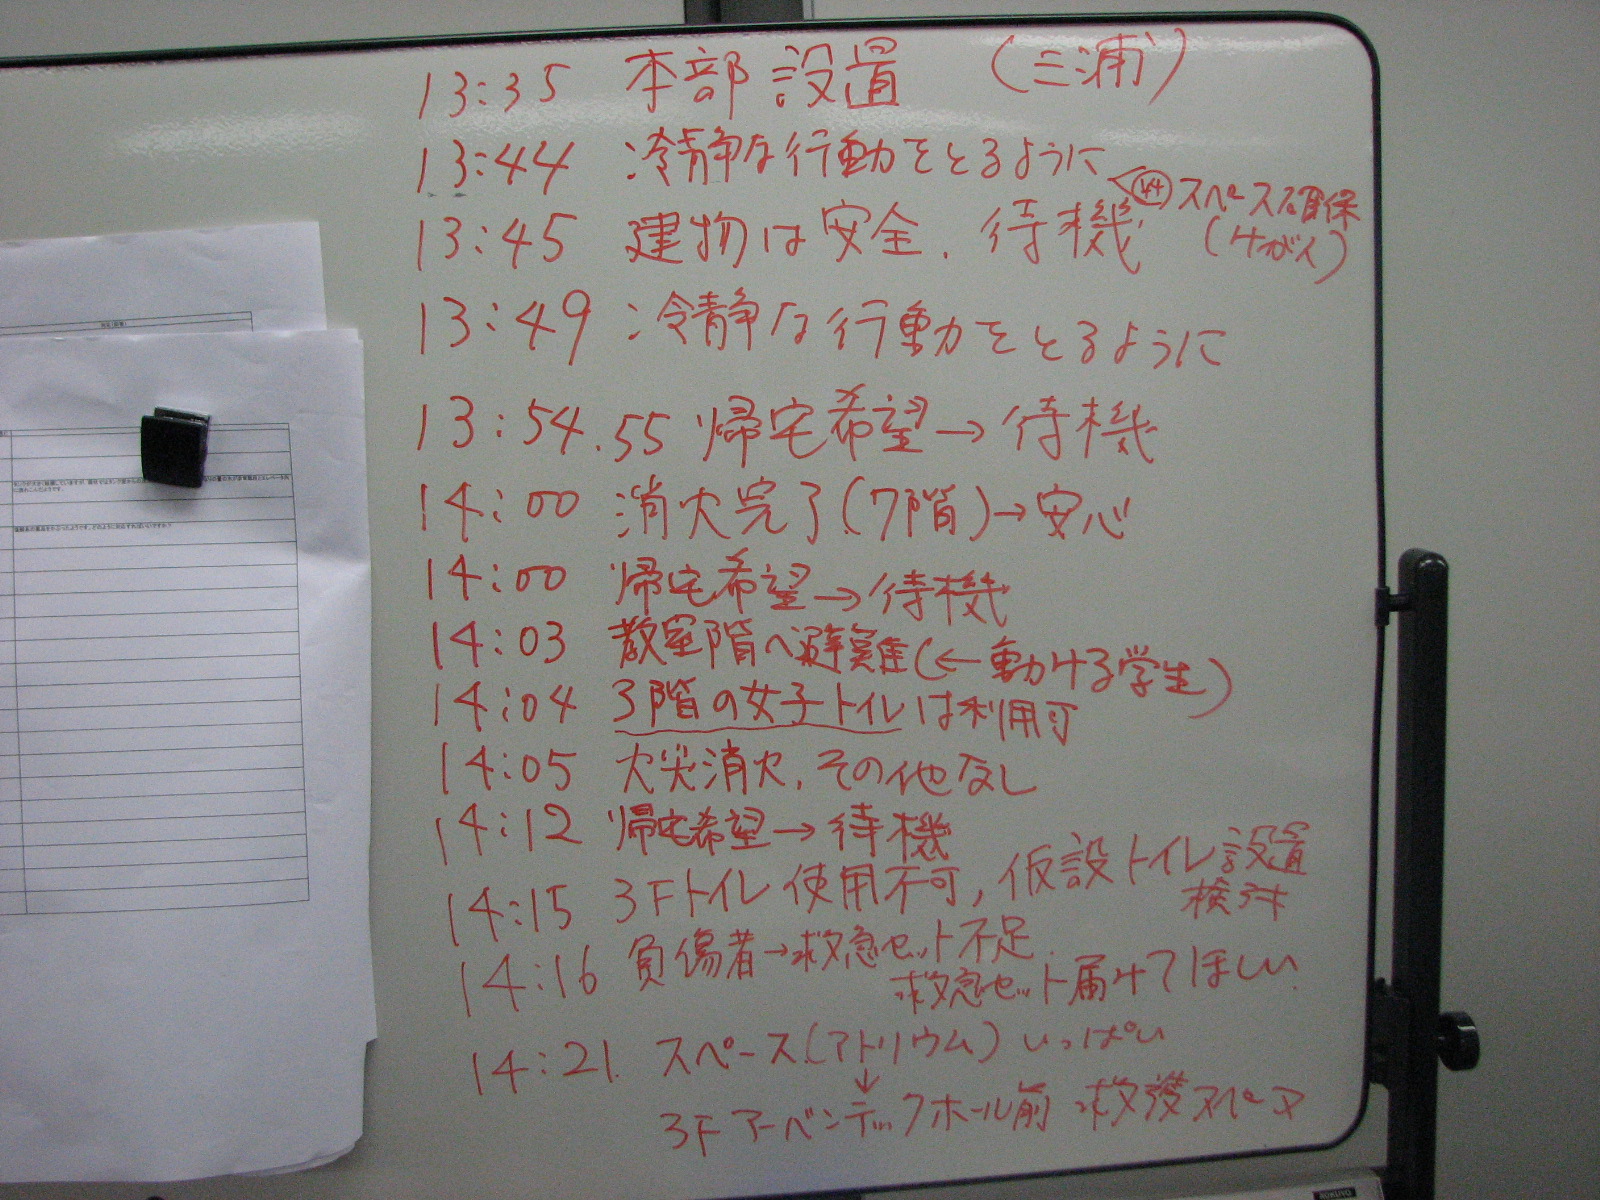 13:35 本部設置 (三浦)
13:44 冷静な行動をとるように
44 スペース確保
(けが人)
13:45 建物は安全. 待機
13:49 冷静な行動をとるように
13:54.55 帰宅希望→待機
14:00 消火完了(7階)→安心
14:00 帰宅希望→待機
14:03 教室階へ避難(←動ける学生)
14:04 3階の女子トイレは利用可
14:05 火災消火, その他なし
14:12 帰宅希望→待機
14:15 3Fトイレ使用不可, 仮設トイレ設置
検討
14:16 負傷者→救急セット不足.
救急セット届けてほしい
14:21. スペース(アトリウム)いっぱい
↓
3F アーバンテックホール前 救護スペース
KOKUYO